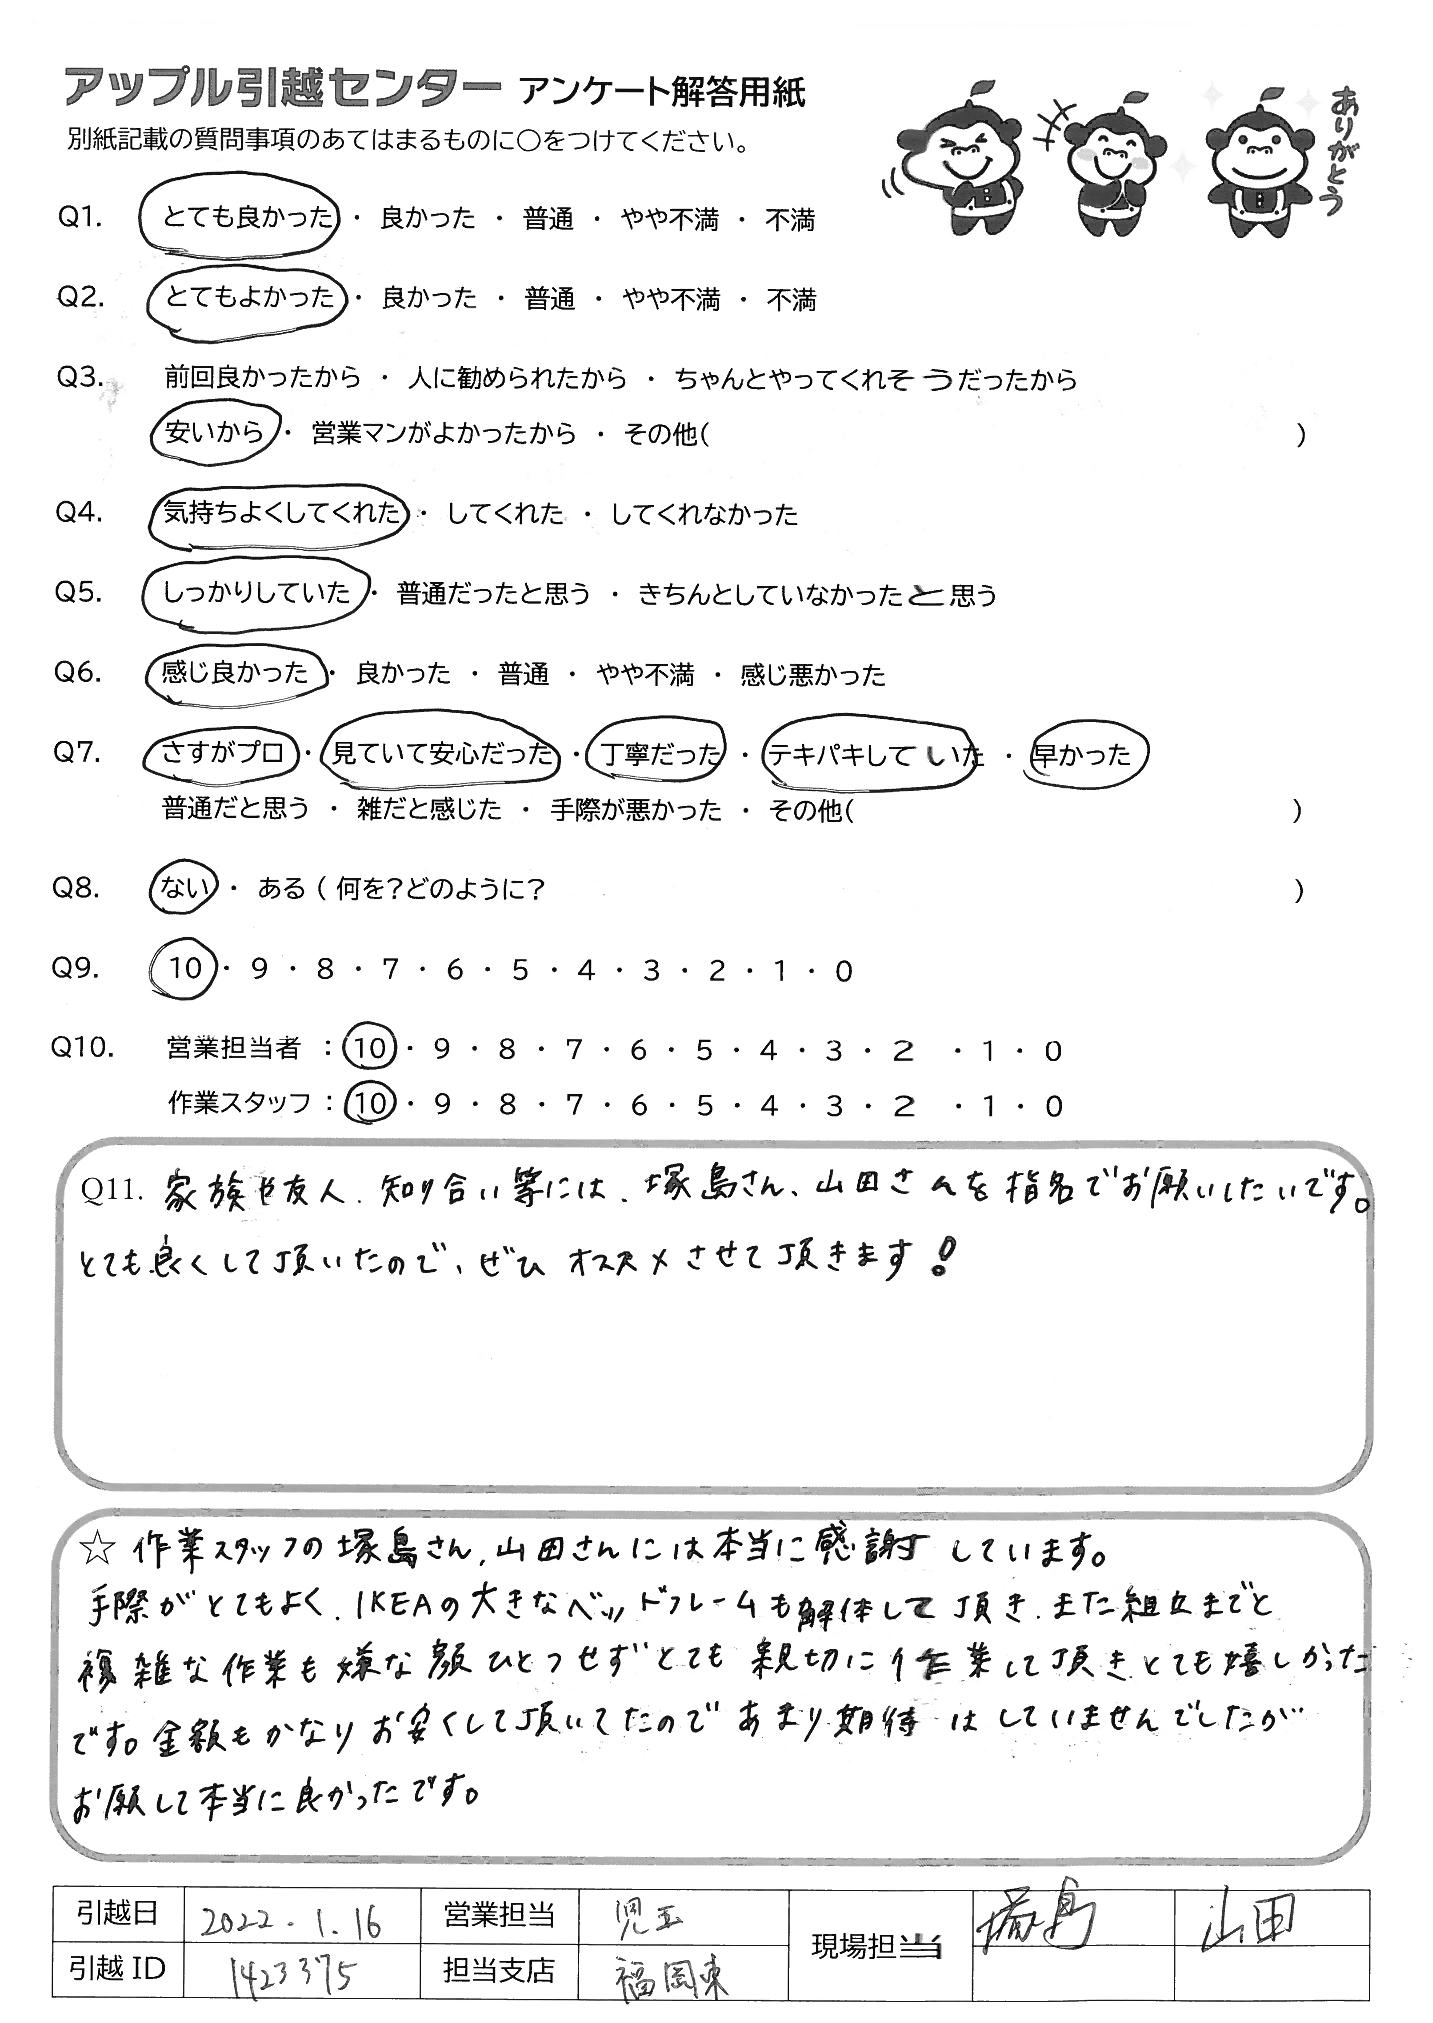 アップル引越センター アンケート解答用紙
ありがとう
別紙記載の質問事項のあてはまるものに〇をつけてください。
Q1. とても良かった ・ 良かった ・ 普通 ・ やや不満 ・ 不満
Q2. とてもよかった ・ 良かった ・ 普通 ・ やや不満 ・ 不満
Q3. 前回良かったから ・ 人に勧められたから ・ ちゃんとやってくれそうだったから
安いから ・ 営業マンがよかったから ・ その他( )
Q4. 気持ちよくしてくれた ・ してくれた ・ してくれなかった
Q5. しっかりしていた ・ 普通だったと思う ・ きちんとしていなかったと思う
Q6. 感じ良かった ・ 良かった ・ 普通 ・ やや不満 ・ 感じ悪かった
Q7. さすがプロ ・ 見ていて安心だった ・ 丁寧だった ・ テキパキしていた ・ 早かった
普通だと思う ・ 雑だと感じた ・ 手際が悪かった ・ その他( )
Q8. ない ・ ある ( 何を?どのように? )
Q9. 10 ・ 9 ・ 8 ・ 7 ・ 6 ・ 5 ・ 4 ・ 3 ・ 2 ・ 1 ・ 0
Q10. 営業担当者 : 10 ・ 9 ・ 8 ・ 7 ・ 6 ・ 5 ・ 4 ・ 3 ・ 2 ・ 1 ・ 0
作業スタッフ : 10 ・ 9 ・ 8 ・ 7 ・ 6 ・ 5 ・ 4 ・ 3 ・ 2 ・ 1 ・ 0
Q11. 家族や友人、知り合い等には、塚島さん、山田さんを指名でお願いしたいです。
とても良くして頂いたので、ぜひオススメさせて頂きます!
☆ 作業スタッフの塚島さん、山田さんには本当に感謝しています。
手際がとてもよく、IKEAの大きなベッドフレームも解体して頂き、また組立までと
複雑な作業も嫌な顔ひとつせずとても親切に作業して頂きとても嬉しかった
です。金額もかなりお安くして頂いてたのであまり期待はしていませんでしたが
お願して本当に良かったです。
引越日 2022.1.16 営業担当 児玉 現場担当 塚島 山田
引越ID 1423375 担当支店 福岡東